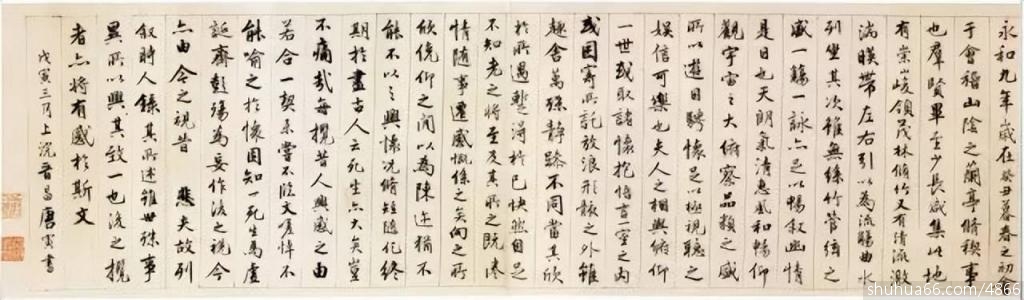 永和九年歲在癸丑暮春之初會
于會稽山陰之蘭亭脩稧事
也羣賢畢至少長咸集此地
有崇山峻領茂林脩竹又有清流激
湍暎帶左右引以為流觴曲水
列坐其次雖無絲竹管弦之
盛一觴一詠亦足以暢敘幽情
是日也天朗氣清惠風和暢仰
觀宇宙之大俯察品類之盛
所以遊目騁懷足以極視聽之
娛信可樂也夫人之相與俯仰
一世或取諸懷抱悟言一室之內
或因寄所託放浪形骸之外雖
趣舍萬殊靜躁不同當其欣
於所遇暫得於己快然自足
不知老之將至及其所之既惓
情隨事遷感慨係之矣向之所
欣俛仰之間以為陳迹猶不
能不以之興懷況脩短隨化終
期於盡古人云死生亦大矣豈
不痛哉每攬昔人興感之由
若合一契未嘗不臨文嗟悼不
能喻之於懷固知一死生為虛
誕齊彭殤為妄作後之視今
亦由今之視昔 悲夫故列
敘時人錄其所述雖世殊事
異所以興其致一也後之攬
者亦將有感於斯文
戊寅三月上浣晉昌唐寅書
shuhua66.com/4866